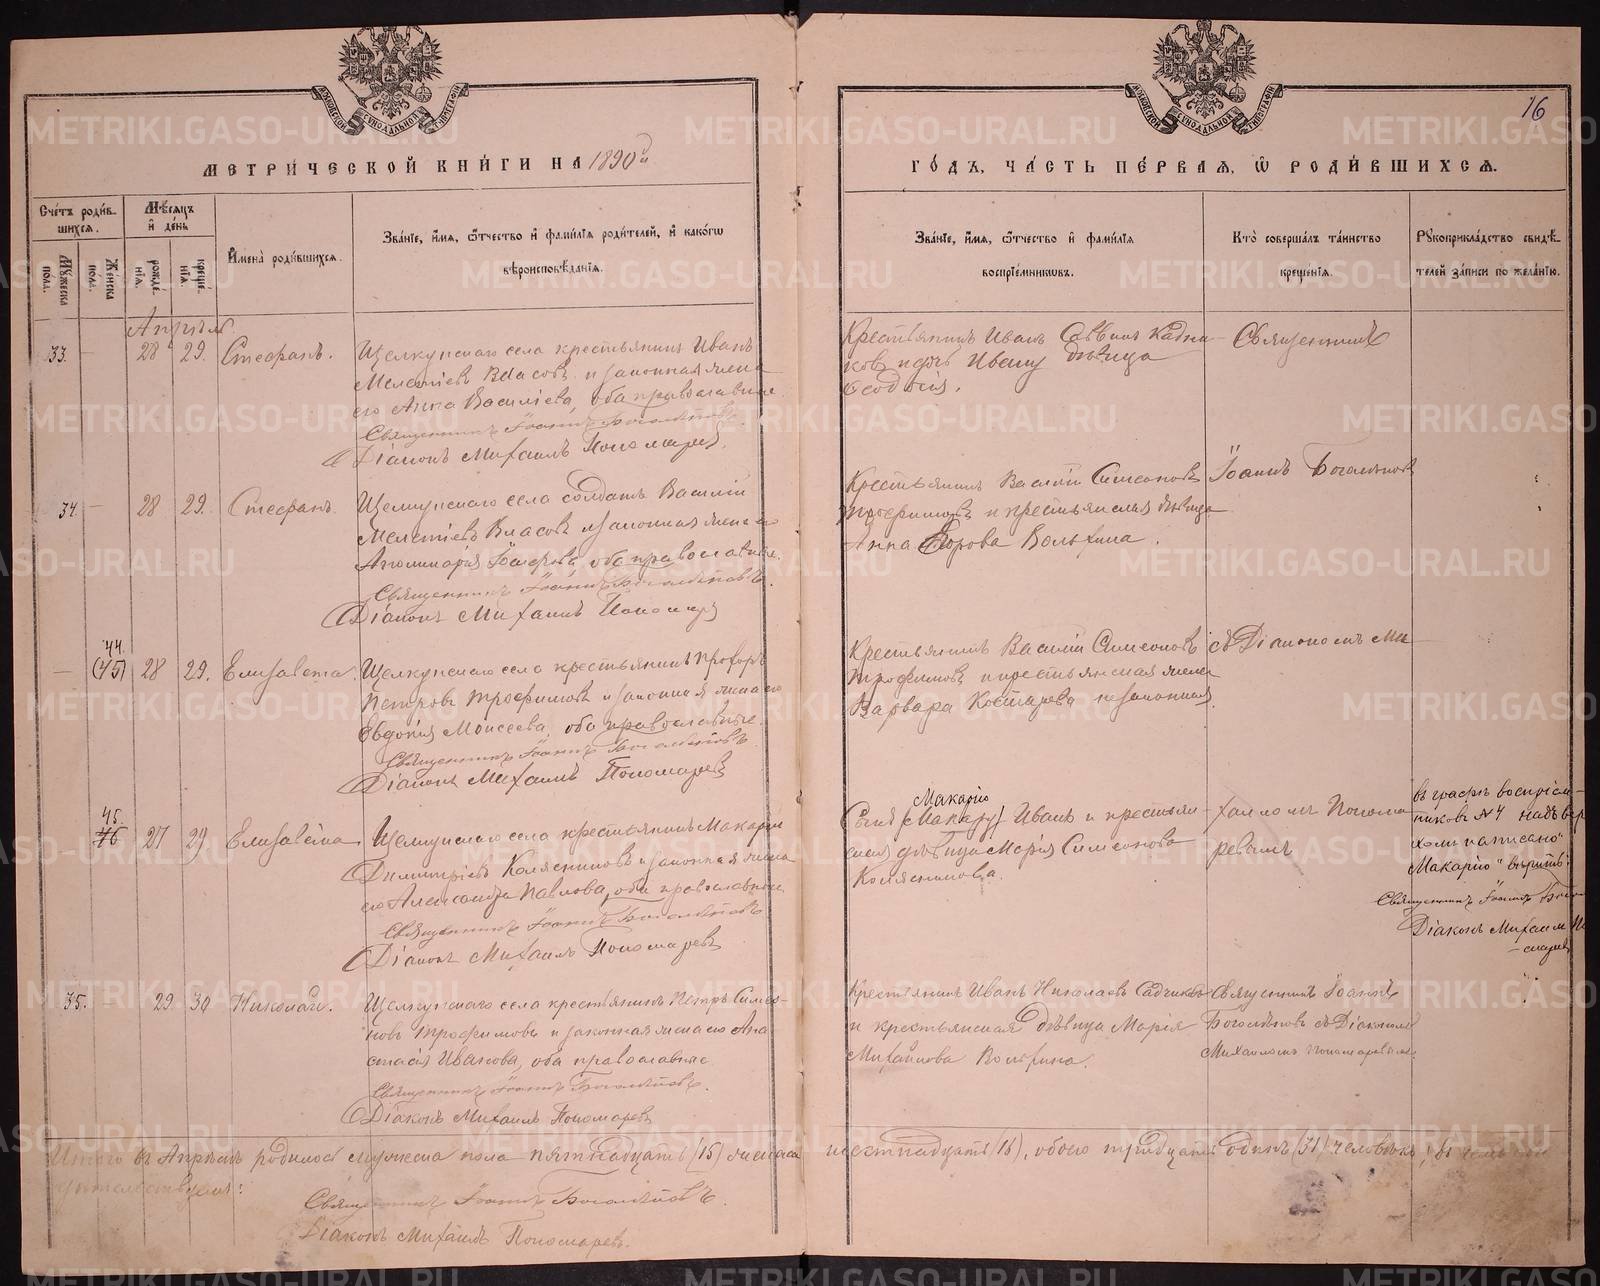 16
МЕТРИЧЕСКОЙ КНИГИ НА 1890й
ГОДЪ, ЧАСТЬ ПЕРВАЯ, Ѡ РОДИВШИХСЯ.
Счетъ родив-
шихся.
Мужеска пола.
Женска пола.
Мѣсяцъ
и день
рожде-
нія.
креще-
нія.
Имена родившихся.
Званіе, имя, ѿчество и фамилія родителей, и какогѡ
вѣроисповѣданія.
Званіе, имя, ѿчество и фамилія
воспріемниковъ.
Кто совершалъ таинство
крещенія.
Рукоприкладство свидѣ-
телей записи по желанію.
Апрѣль
33. — 28 29. Стефанъ.
Щелкунскаго села крестьянинъ Иванъ
Мелетіевъ Власовъ и законная жена
его Анна Василіева, оба православные.
Священникъ Іоаннъ Боголѣповъ.
Діаконъ Михаилъ Пономаревъ
Крестьянинъ Иванъ Саввинъ
дѣвица
Ѳеодосія.
Священникъ
34. — 28 29. Стефанъ.
Щелкунскаго села солдатъ Василій
Мелетіевъ Власовъ и законная жена его
оба православные.
Священникъ Іоаннъ Боголѣповъ.
Діаконъ Михаилъ Пономаревъ
Крестьянинъ Василій Симеоновъ
Трофимовъ и крестьянская дѣвица
Анна
Іоаннъ Боголѣповъ
44.
— (45) 28 29. Елизавета.
Щелкунскаго села крестьянинъ Прохоръ
Петровъ Трофимовъ и законная жена его
Евдокія Моисеева, оба православные.
Священникъ Іоаннъ Боголѣповъ.
Діаконъ Михаилъ Пономаревъ
Крестьянинъ Василій Симеоновъ
Трофимовъ и крестьянская жена
Варвара Костарева
съ Діакономъ Ми-
45.
46 27 29. Елизавета
Щелкунскаго села крестьянинъ Макарій
Димитріевъ Колясниковъ и законная жена
его Александра Павлова, оба православные
Священникъ Іоаннъ Боголѣповъ
Діаконъ Михаилъ Пономаревъ
Макарію
Иванъ и крестьян-
ская дѣвица Марія Симеонова
Колясникова.
хаиломъ Понома-
ревымъ
въ графѣ воспріем-
никовъ №4 надъ вер-
хомъ написано „
Макарію" вѣрить:
Священникъ Іоаннъ
Діаконъ Михаилъ По
-маревъ
35. — 29 30 Николай.
Щелкунскаго села крестьянинъ Петръ Симео-
новъ Трофимовъ и законная жена его Ана-
стасія Иванова, оба православные
Священникъ Іоаннъ Боголѣповъ.
Діаконъ Михаилъ Пономаревъ
Крестьянинъ Иванъ Николаевъ
и крестьянская дѣвица Марія
Михайлова
Священникъ Іоаннъ
Боголѣповъ съ Діакономъ
Михаиломъ Пономаревымъ
Итого въ Апрѣлѣ родилось мужеска пола пятнадцать (15) женска
шестнадцать (16), обоего тридцать одинъ (31) человѣкъ, въ чемъ
Священникъ Іоаннъ Боголѣповъ.
Діаконъ Михаилъ Пономаревъ.
METRIKI.GASO-URAL.RU